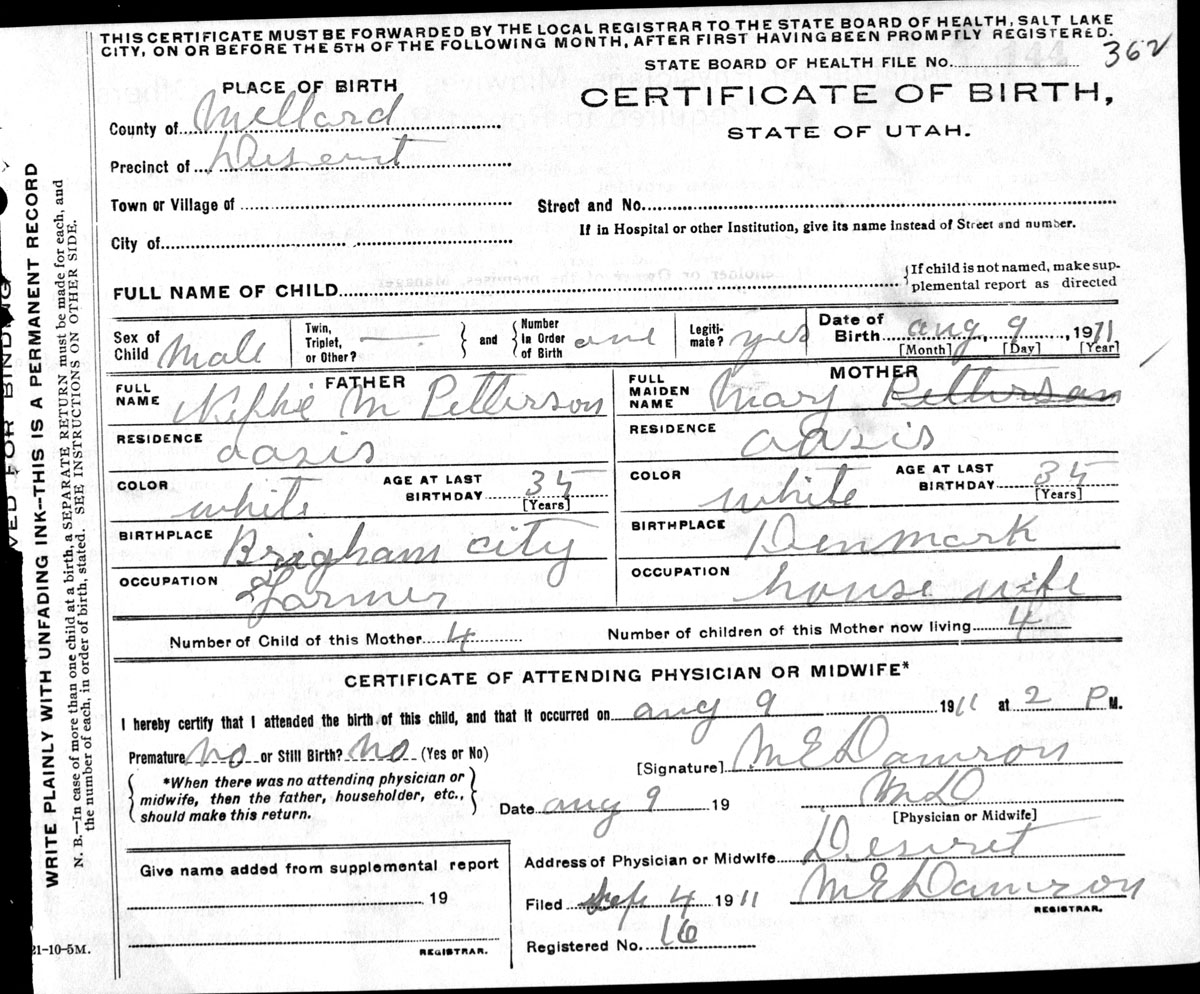 THIS CERTIFICATE MUST BE FORWARDED BY THE LOCAL REGISTRAR TO THE STATE BOARD OF HEALTH, SALT LAKE
CITY, ON OR BEFORE THE 5TH OF THE FOLLOWING MONTH, AFTER FIRST HAVING BEEN PROMPTLY REGISTERED.
STATE BOARD OF HEALTH FILE No. 362
PLACE OF BIRTH
CERTIFICATE OF BIRTH,
STATE OF UTAH.
County of Millard
Precinct of
Town or Village of
Street and No.
If in Hospital or other Institution, give its name instead of Street and number.
City of
FULL NAME OF CHILD
{If child is not named, make sup-
plemental report as directed
Sex of Child Male
Twin, Triplet, or Other? —
and
Number In Order of Birth one
Legiti-mate? yes
Date of Birth aug 9, 1911
[Month] [Day] [Year]
FATHER
FULL NAME Nephie M Petterson
MOTHER
FULL MAIDEN NAME Mary Petterson
RESIDENCE oasis
RESIDENCE oasis
COLOR white
AGE AT LAST BIRTHDAY 35
[Years]
COLOR white
AGE AT LAST BIRTHDAY 35
[Years]
BIRTHPLACE Brigham city
BIRTHPLACE Denmark
OCCUPATION Farmer
OCCUPATION house wife
Number of Child of this Mother 4
Number of children of this Mother now living 4
CERTIFICATE OF ATTENDING PHYSICIAN OR MIDWIFE*
I hereby certify that I attended the birth of this child, and that it occurred on aug 9 1911 at 2 P M.
Premature No or Still Birth? No (Yes or No)
*When there was no attending physician or
midwife, then the father, householder, etc.,
should make this return.
[Signature] M E Damron
Date aug 9 19
M D
[Physician or Midwife]
Address of Physician or Midwife Deseret
Filed Sep 4 1911
M E Damron
REGISTRAR.
Registered No. 16
Give name added from supplemental report
19
REGISTRAR.
21-10-5M.
WRITE PLAINLY WITH UNFADING INK—THIS IS A PERMANENT RECORD
N. B.—In case of more than one child at a birth, a SEPARATE RETURN must be made for each, and
the number of each, in order of birth, stated. SEE INSTRUCTIONS ON OTHER SIDE.
VED FOR BINDING